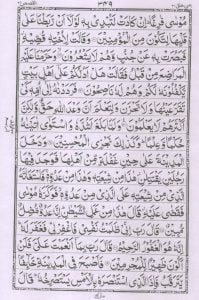 ٣٤٩
مُوْسٰى فٰرِغًا ؕ اِنْ كَادَتْ لَتُبْدِيْ بِهٖ لَوْ لَاۤ اَنْ رَّبَطْنَا عَلٰى
قَلْبِهَا لِتَكُوْنَ مِنَ الْمُؤْمِنِيْنَ وَقَالَتْ لِاُخْتِهٖ قُصِّيْهِ
فَبَصُرَتْ بِهٖ عَنْ جُنُبٍ وَّهُمْ لَا يَشْعُرُوْنَ وَحَرَّمْنَا عَلَيْهِ
الْمَرَاضِعَ مِنْ قَبْلُ فَقَالَتْ هَلْ اَدُلُّكُمْ عَلٰۤى اَهْلِ بَيْتٍ
يَّكْفُلُوْنَهٗ لَكُمْ وَهُمْ لَهٗ نٰصِحُوْنَ فَرَدَدْنٰهُ اِلٰۤى اُمِّهٖ كَيْ
تَقَرَّ عَيْنُهَا وَلَا تَحْزَنَ وَلِتَعْلَمَ اَنَّ وَعْدَ اللّٰهِ حَقٌّ وَّلٰكِنَّ
اَكْثَرَهُمْ لَا يَعْلَمُوْنَ وَلَمَّا بَلَغَ اَشُدَّهٗ وَاسْتَوٰۤى اٰتَيْنٰهُ
حُكْمًا وَّعِلْمًا وَكَذٰلِكَ نَجْزِي الْمُحْسِنِيْنَ وَدَخَلَ
الْمَدِيْنَةَ عَلٰى حِيْنِ غَفْلَةٍ مِّنْ اَهْلِهَا فَوَجَدَ فِيْهَا
رَجُلَيْنِ يَقْتَتِلٰنِ هٰذَا مِنْ شِيْعَتِهٖ وَهٰذَا مِنْ عَدُوِّهٖ فَاسْتَغَاثَهُ
الَّذِيْ مِنْ شِيْعَتِهٖ عَلَى الَّذِيْ مِنْ عَدُوِّهٖ فَوَكَزَهٗ مُوْسٰى
فَقَضٰى عَلَيْهِ قَالَ هٰذَا مِنْ عَمَلِ الشَّيْطٰنِ اِنَّهٗ عَدُوٌّ مُّضِلٌّ
مُّبِيْنٌ قَالَ رَبِّ اِنِّيْ ظَلَمْتُ نَفْسِيْ فَاغْفِرْ لِيْ فَغَفَرَ لَهٗ
اِنَّهٗ هُوَ الْغَفُوْرُ الرَّحِيْمُ قَالَ رَبِّ بِمَاۤ اَنْعَمْتَ عَلَيَّ فَلَنْ
اَكُوْنَ ظَهِيْرًا لِّلْمُجْرِمِيْنَ فَاَصْبَحَ فِي الْمَدِيْنَةِ خَآئِفًا
يَّتَرَقَّبُ فَاِذَا الَّذِي اسْتَنْصَرَهٗ بِالْاَمْسِ يَسْتَصْرِخُهٗ قَالَ